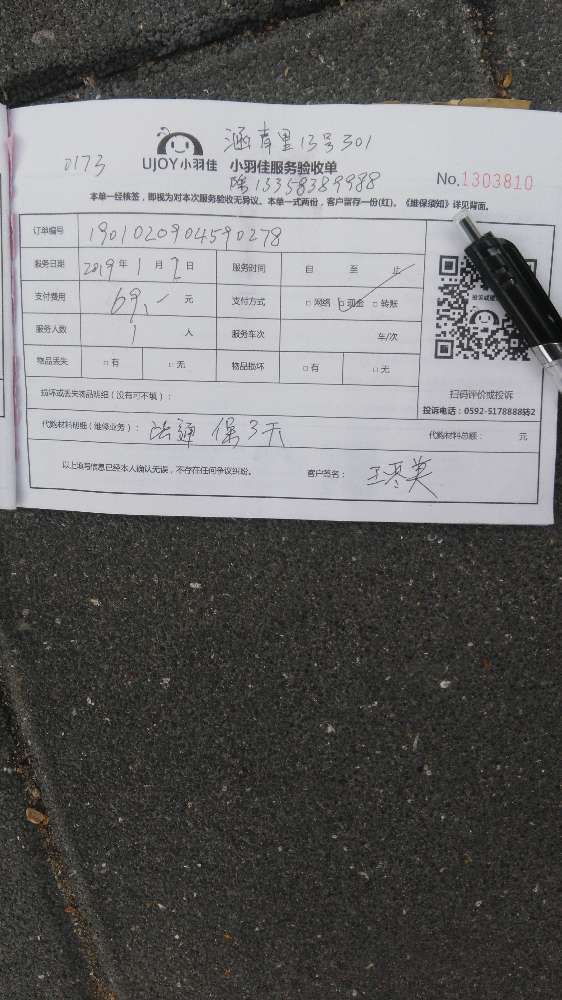 涵青里13号301
0173
UJOY小羽佳 小羽佳服务验收单
13358389988
No.1303810
本单一经核签，即视为对本次服务验收无异议。本单一式两份，客户留存一份(红)。《维保须知》详见背面。
订单编号 1901020904590278
服务日期 2019年1月2日 服务时间 自 至 止
支付费用 69.- 元 支付方式 □网络 □现金 □转账
服务人数 1 人 服务车次 车/次
物品丢失 □有 □无 物品损坏 □有 □无
扫码评价或投诉
投诉电话：0592-5178888转2
损坏或丢失物品明细（没有可不填）：
代购材料明细（维修业务）： 疏通 保3天 代购材料总额： 元
以上填写信息已经本人确认无误，不存在任何争议纠纷。 客户签名：